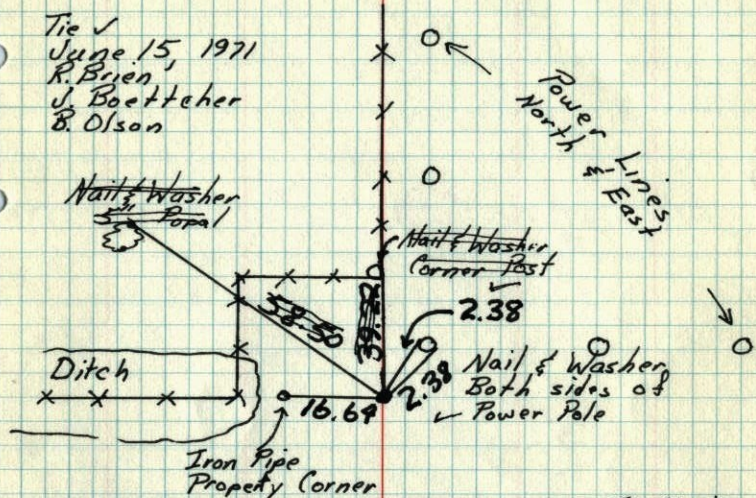 Tie ✓
June 15, 1971
R. Brien
J. Boettcher
B. Olson
Power Lines
North & East
Nail & Washer
5" Popal
Nail & Washer
Corner Post
✓
58.50
39.22
2.38
2.38
Nail & Washer
Both sides of
✓ Power Pole
Ditch
16.64
Iron Pipe
Property Corner